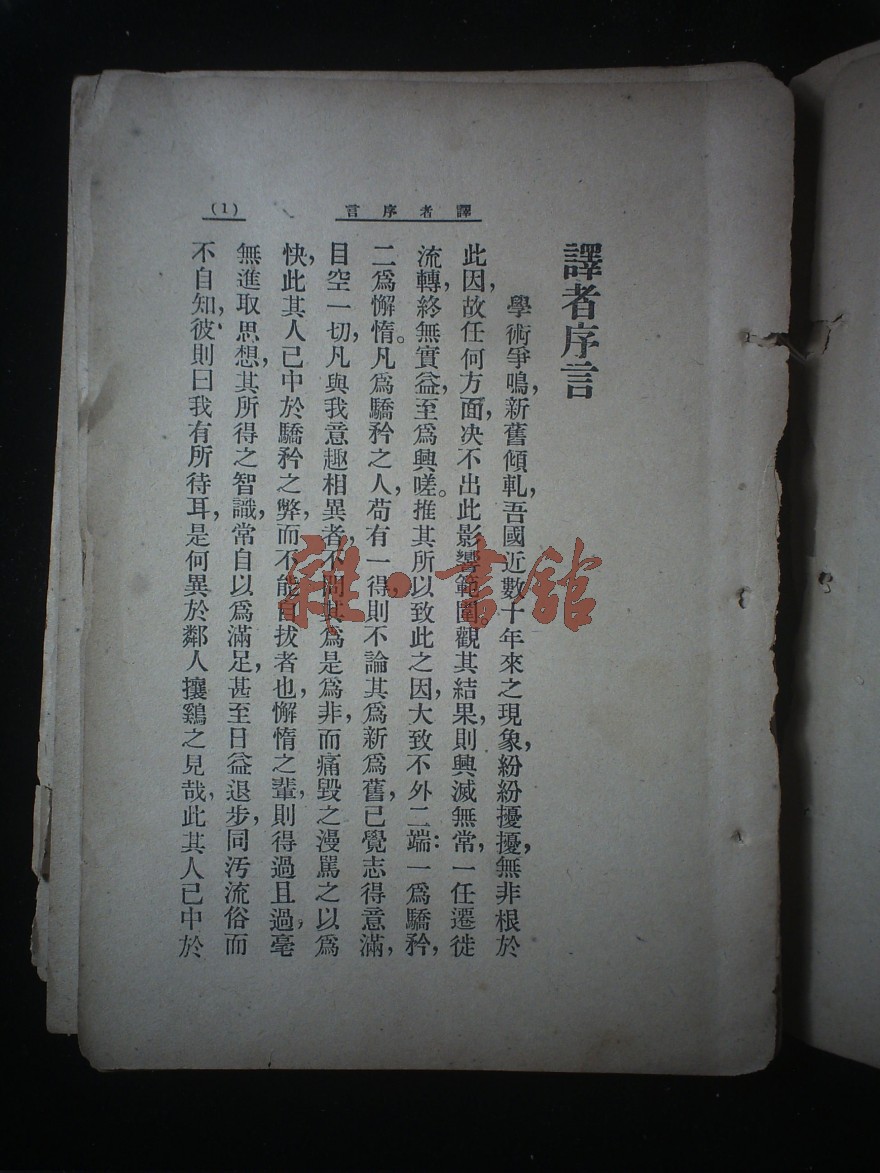 譯者序言
(1)
譯者序言
學術爭鳴,新舊傾軋,吾國近數十年來之現象,紛紛擾擾,無非根於
此因,故任何方面,决不出此影響範圍。觀其結果,則興滅無常,一任遷徙
流轉,終無實益,至爲興嗟。推其所以致此之因,大致不外二端:一爲驕矜,
二爲懈惰。凡爲驕矜之人,苟有一得,則不論其爲新爲舊,已覺志得意滿,
目空一切,凡與我意趣相異者,不問其爲是爲非,而痛毀之漫駡之以爲
快,此其人已中於驕矜之弊,而不能自拔者也,懈惰之輩,則得過且過,毫
無進取思想,其所得之智識,常自以爲滿足,甚至日益退步,同汚流俗而
不自知,彼則曰我有所待耳,是何異於鄰人攘鷄之見哉,此其人已中於
雜·書舘